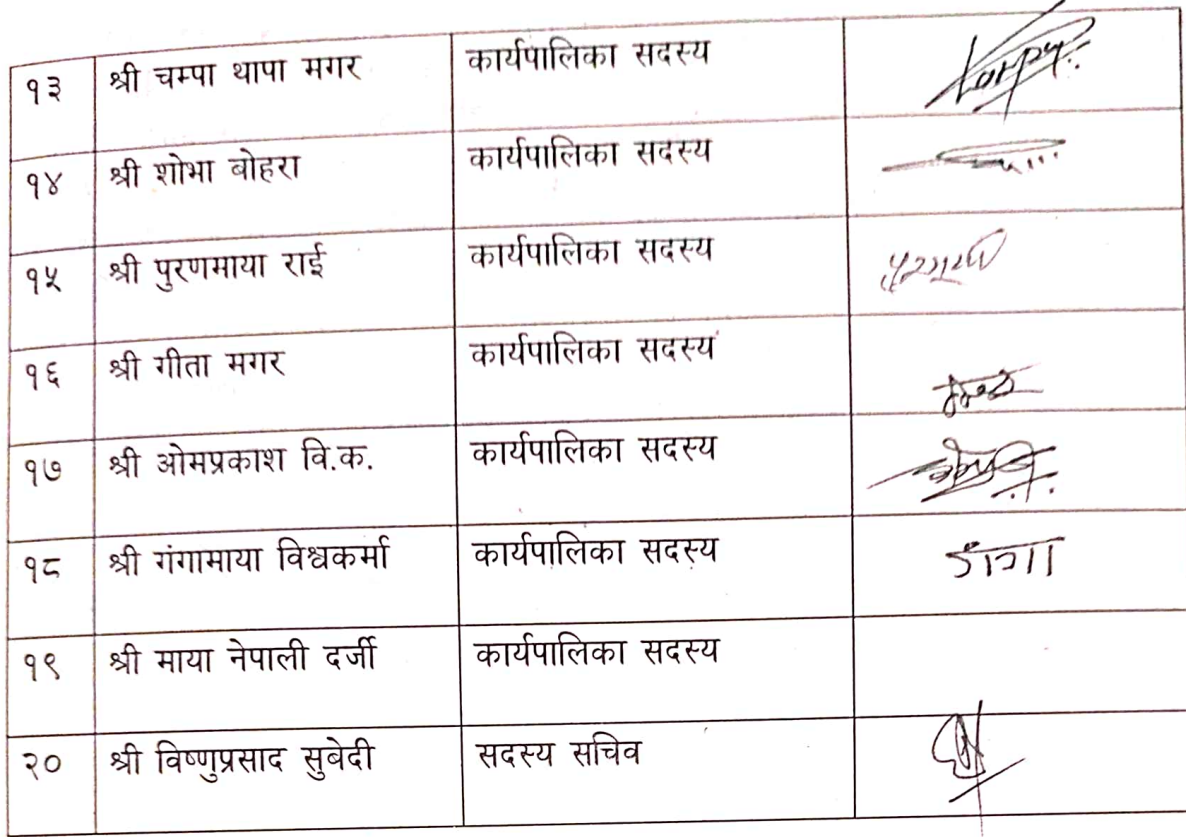 १३ श्री चम्पा थापा मगर कार्यपालिका सदस्य
१४ श्री शोभा बोहरा कार्यपालिका सदस्य
१५ श्री पुरणमाया राई कार्यपालिका सदस्य
१६ श्री गीता मगर कार्यपालिका सदस्य
१७ श्री ओमप्रकाश वि.क. कार्यपालिका सदस्य
१८ श्री गंगामाया विश्वकर्मा कार्यपालिका सदस्य
१९ श्री माया नेपाली दर्जी कार्यपालिका सदस्य
२० श्री विष्णुप्रसाद सुबेदी सदस्य सचिव